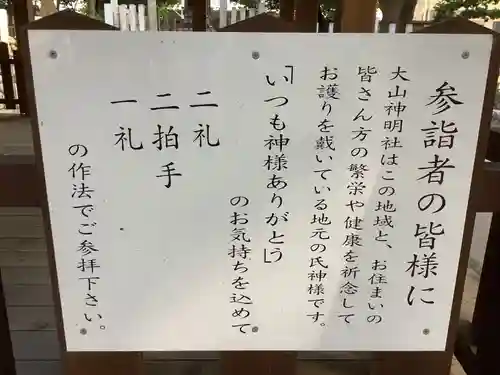 参詣者の皆様に
大山神明社はこの地域と、お住まいの
皆さん方の繁栄や健康を祈念して
お護りを戴いている地元の氏神様です。
「いつも神様ありがとう」
のお気持ちを込めて
二礼
二拍手
一礼
の作法でご参拝下さい。